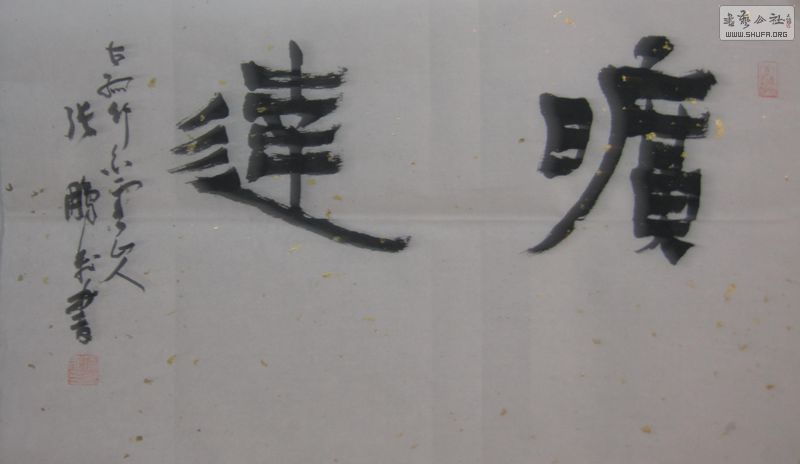 曠達
古孤竹白雲山人
張鵬於書
書藝公社
WWW.SHUFA.ORG